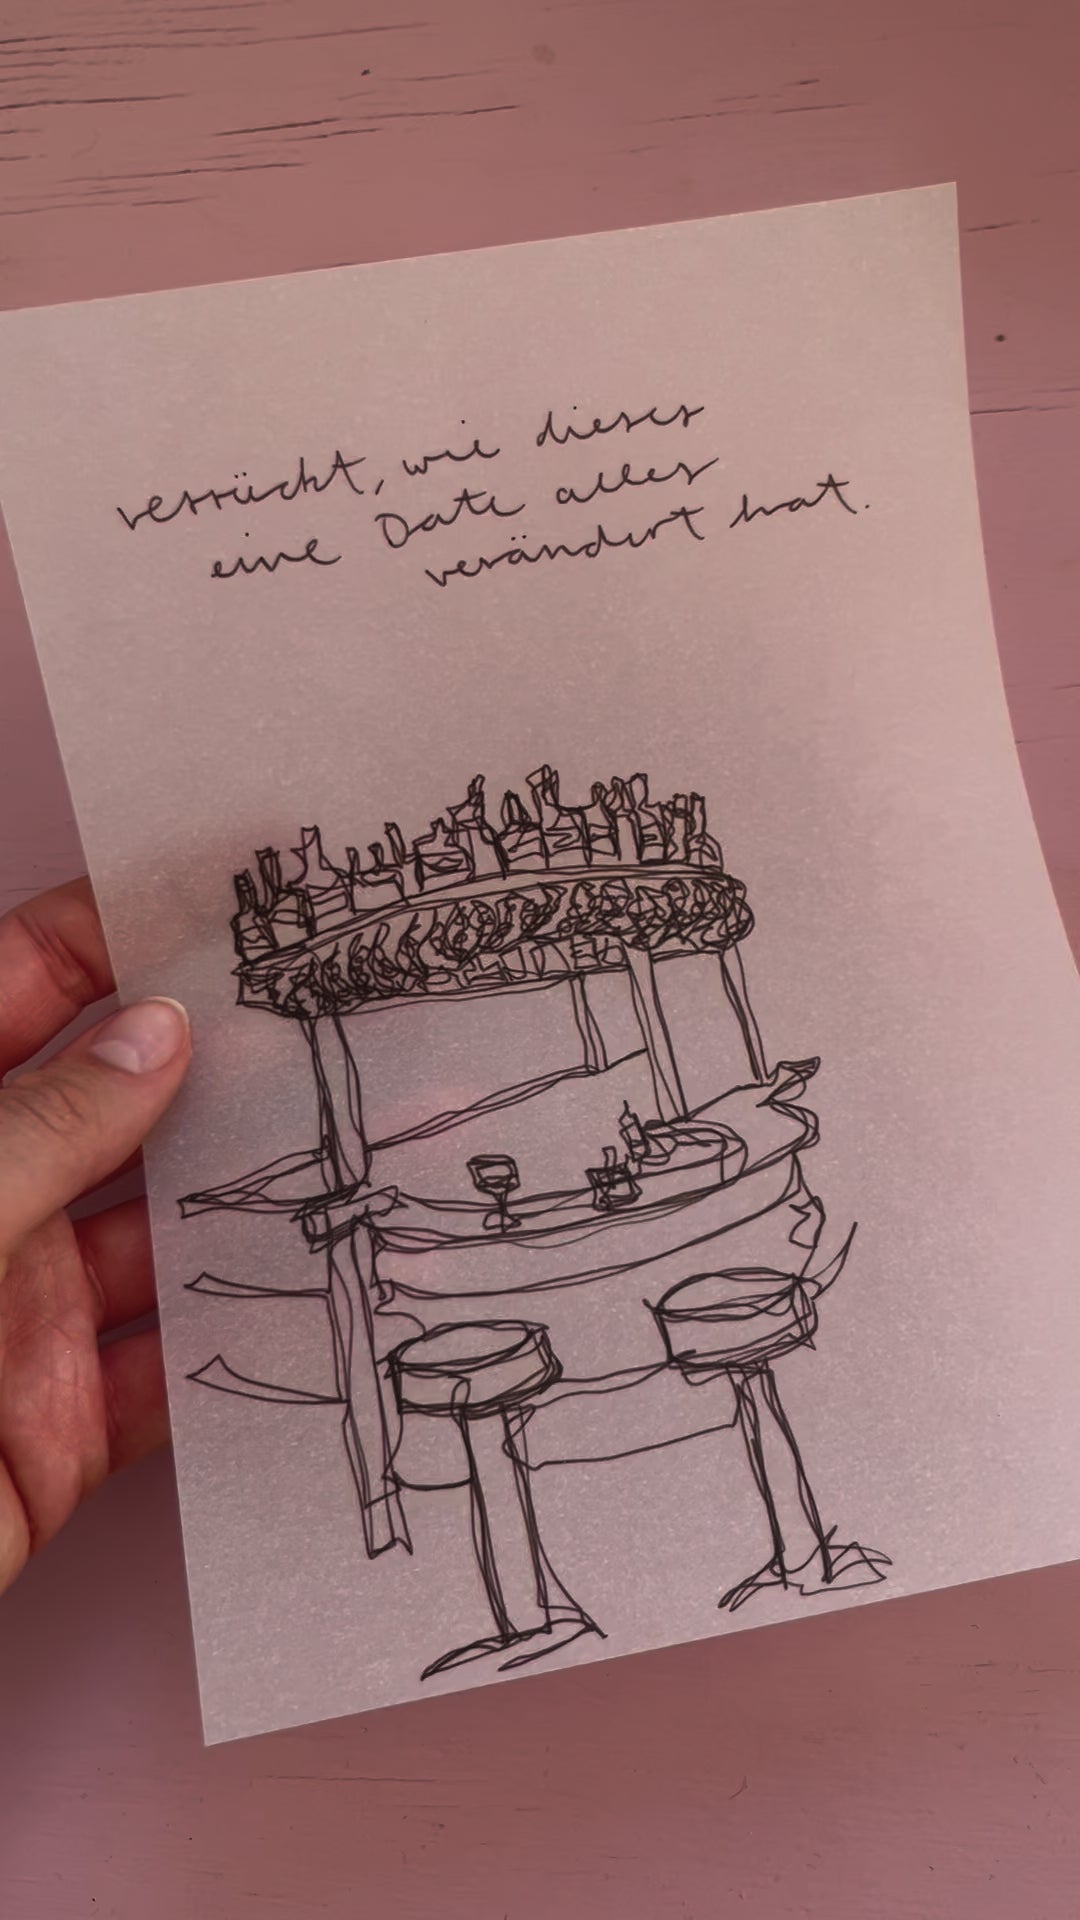 verrückt, wie dieses
eine Date alles
verändert hat.